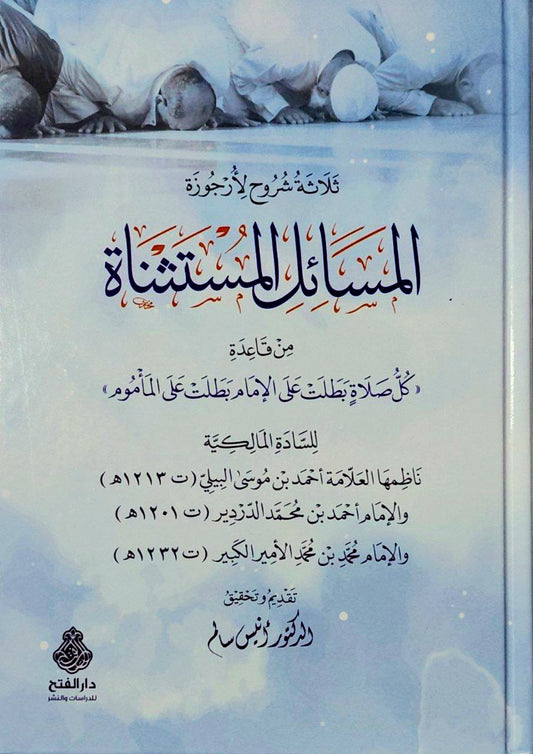 ثَلَاثَةُ شُرُوحٍ لِأُرْجُوزَةِ
المَسَائِلِ المُسْتَثْنَاةِ
مِنْ قَاعِدَةِ
«كُلُّ صَلَاةٍ بَطَلَتْ عَلَى الإِمَامِ بَطَلَتْ عَلَى المَأْمُومِ»
لِلسَّادَةِ المَالِكِيَّةِ
نَاظِمِهَا العَلَّامَةِ أَحْمَد بْن مُوسَى البِيلِيّ (ت ١٢١٣هـ)
وَالإِمَامِ أَحْمَد بْن مُحَمَّد الدَّرْدِير (ت ١٢٠١هـ)
وَالإِمَامِ مُحَمَّدِ بْنِ مُحَمَّدٍ الأَمِير الكَبِير (ت ١٢٣٢هـ)
تَقْدِيمُ وَتَحْقِيقُ
الدكتور أنيس سالم
دار الفتح
للدراسات والنشر